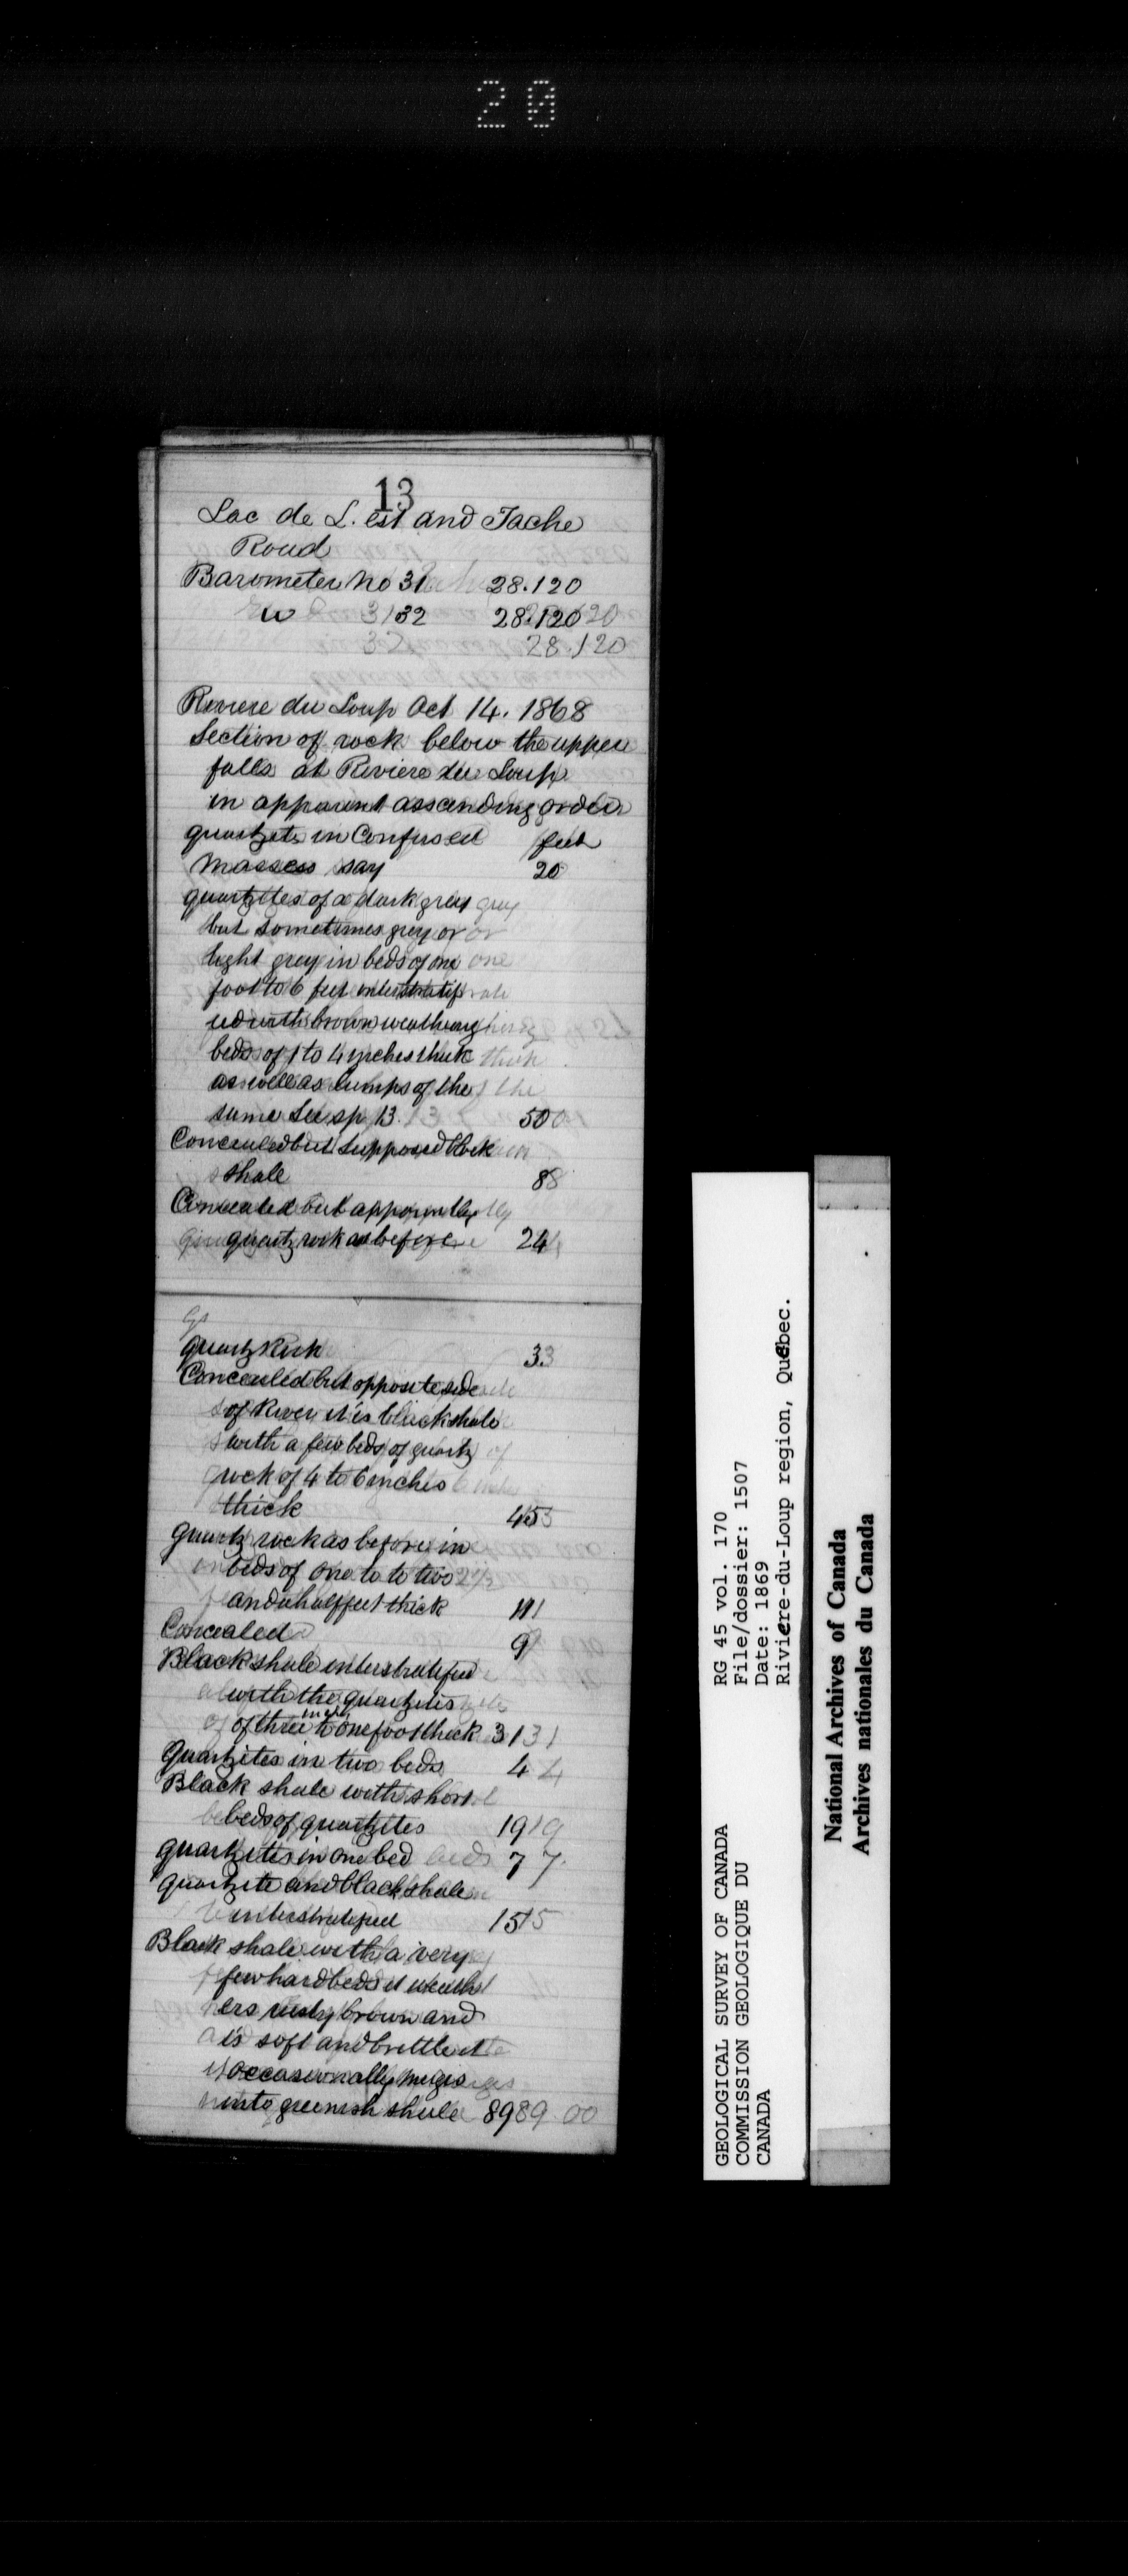 20
13
Lac de L. est and Tache
Road
Barometer No 31 28.120
32 28.120
Riviere du Loup Oct 14. 1868
Section of rock below the upper
falls at Riviere du Loup
in apparent assending order
quartzite in Confused feet
Masses say 20
quartzites of a dark grey
but sometimes grey or
light grey in beds of one
foot to 6 feet interstratif
ied with brown weathering
beds of 1 to 4 inches thick
as well as lumps of the
same See sp 13. 50
Concealed but supposed black
shale 88
Concealed but apparently
quartz rock as before 24
quartz Rock 33
Concealed but opposite side
of River it is black shale
with a few beds of quartz
rock of 4 to 6 inches
thick 45
quartz rock as before in
beds of one to to two
and a half feet thick 11
Concealed 9
Black shale interstratified
with the quartzites
of three inches to one foot thick 31
Quartzites in two beds 4
Black shale with short
beds of quartzites 19
quartzites in one bed 7
quartzite and black shale
interstratified 15
Black shale with a very
few hard beds it weath
ers rusty brown and
is soft and brittle it
occasionally merges
into greenish shale 89
GEOLOGICAL SURVEY OF CANADA RG 45 vol. 170
COMMISSION GEOLOGIQUE DU File/dossier: 1507
CANADA Date: 1869
Rivière-du-Loup region, Québec.
National Archives of Canada
Archives nationales du Canada